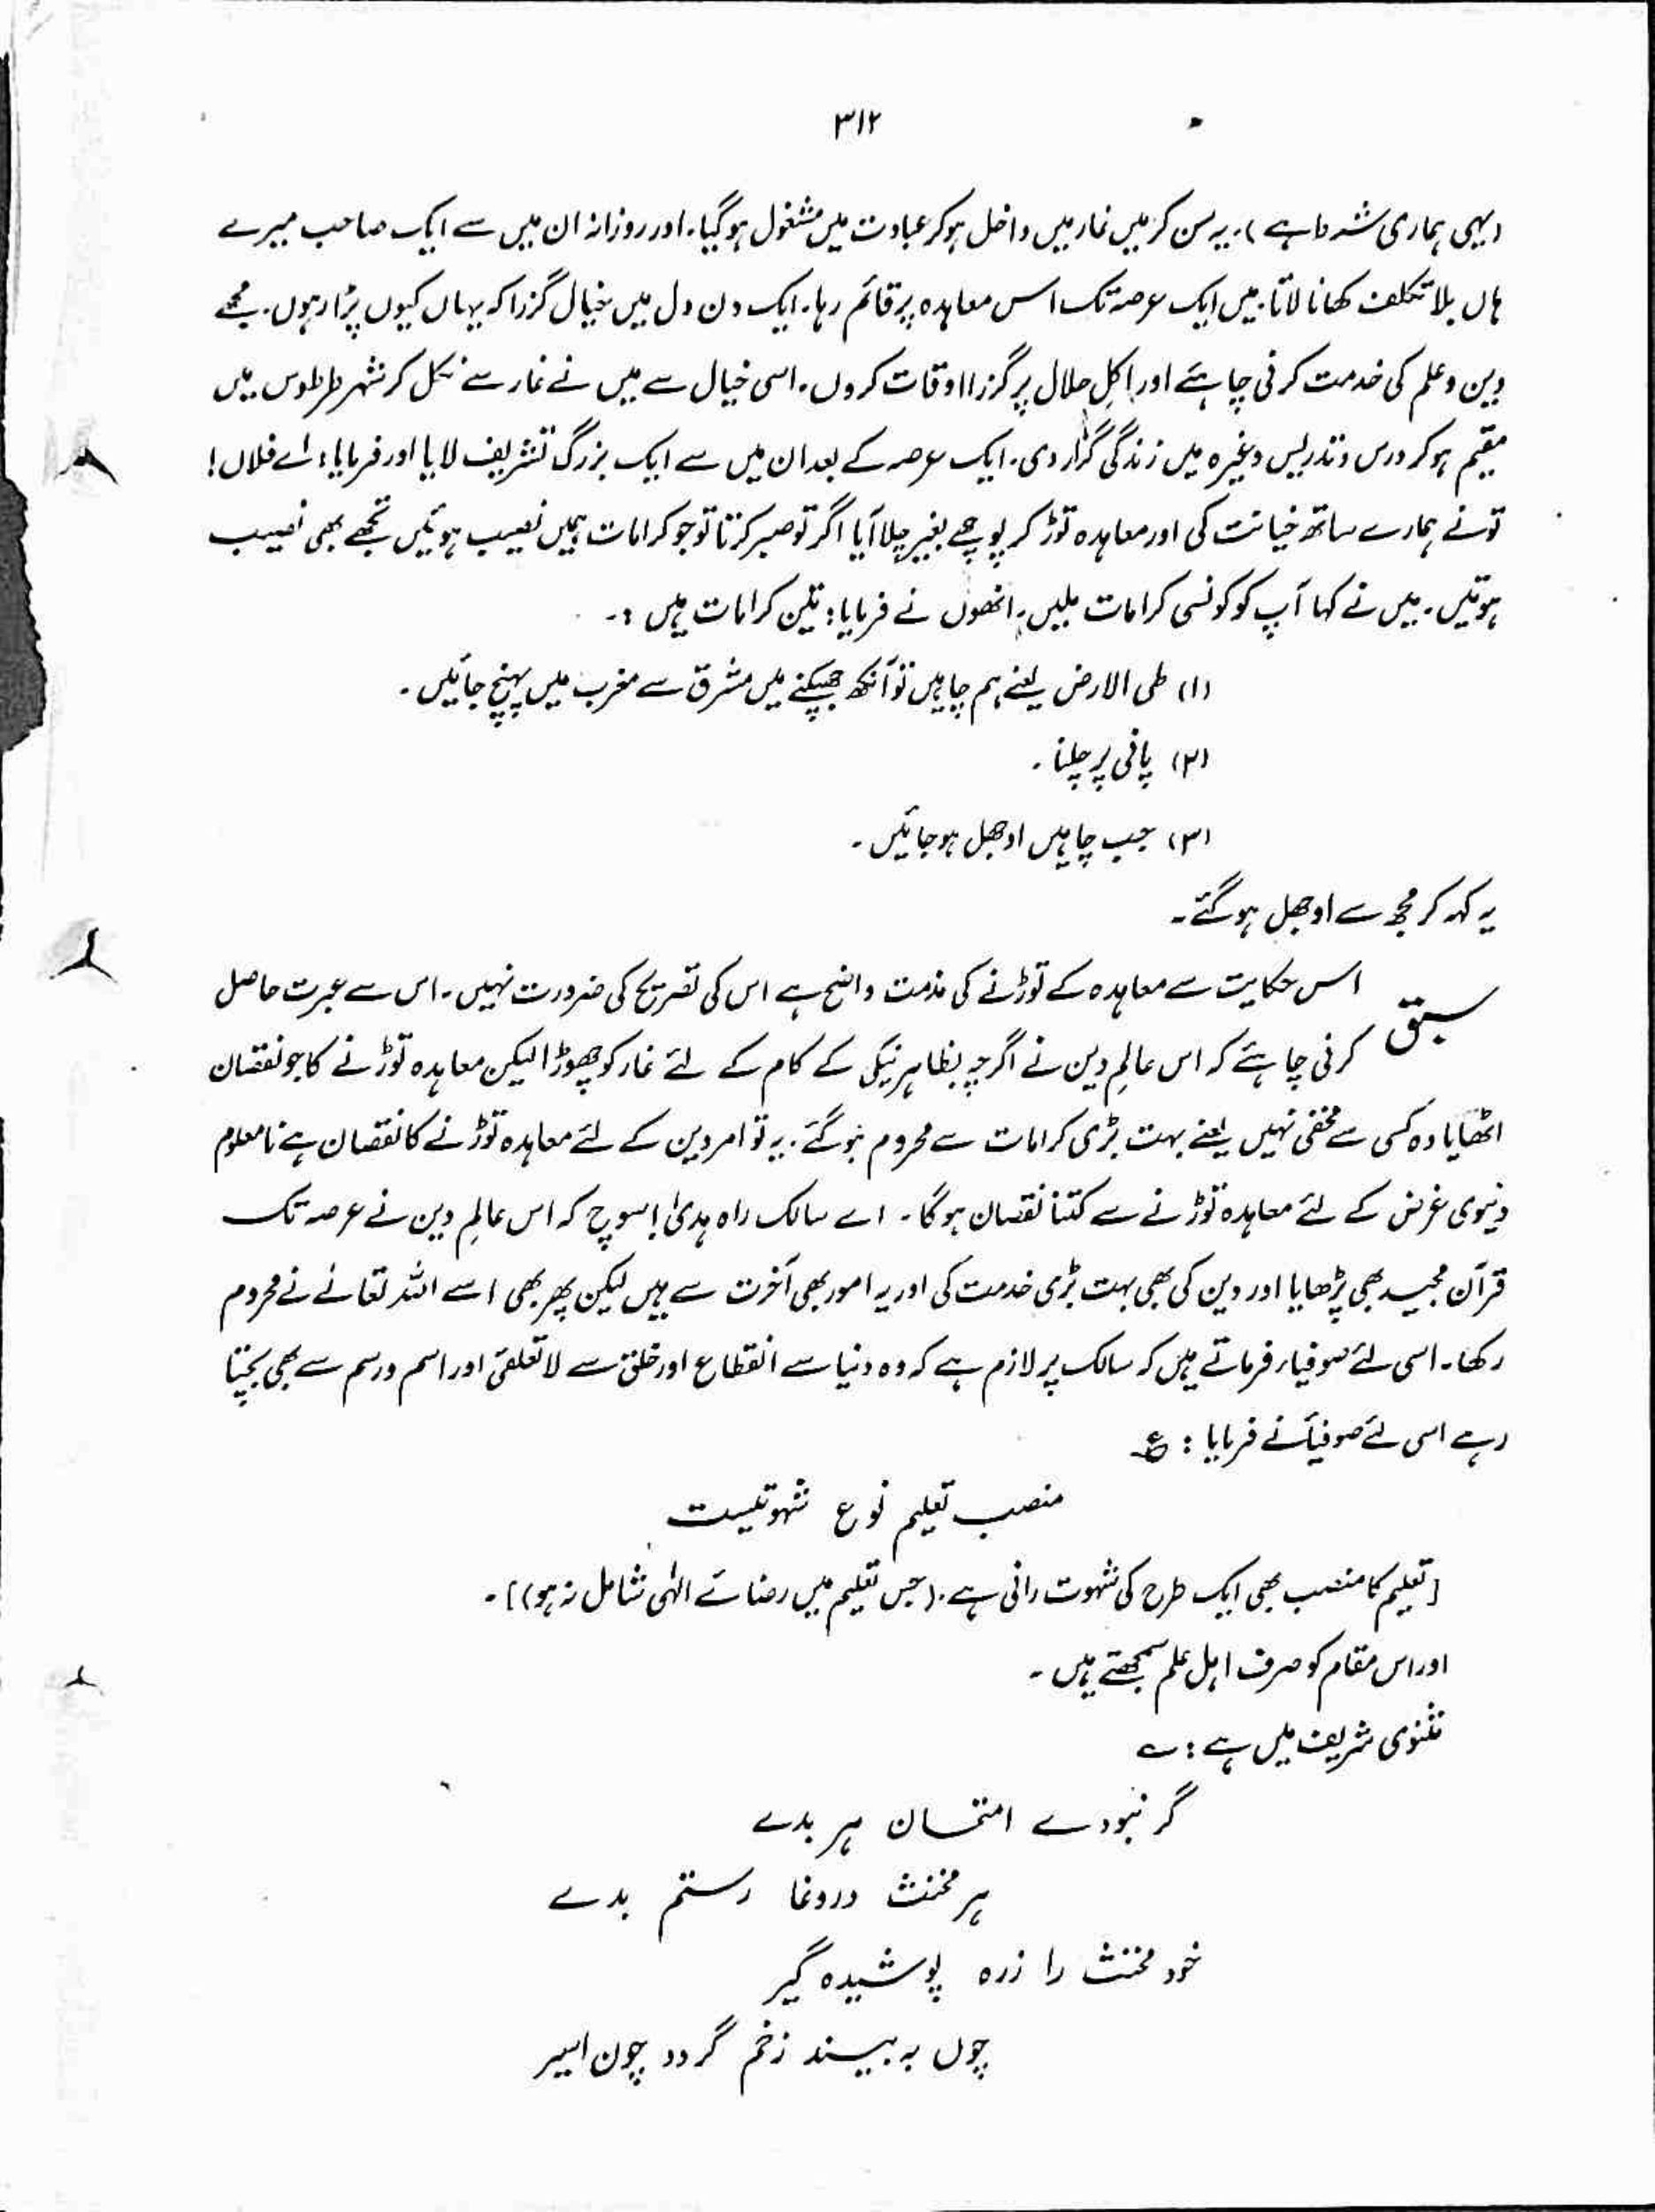 ۳۱۲
(یہی ہماری شرط ہے)۔ یہ سن کر میں غار میں داخل ہو کر عبادت میں مشغول ہو گیا۔ اور روزانہ ان میں سے ایک صاحب میرے
ہاں بلا تکلف کھانا لاتا۔ میں ایک عرصہ تک اس معاہدہ پر قائم رہا۔ ایک دن دل میں خیال گزرا کہ یہاں کیوں پڑا رہوں۔ مجھے
دین و علم کی خدمت کرنی چاہئے اور اکلِ حلال پر گزر اوقات کروں۔ اسی خیال سے میں نے غار سے نکل کر شہر طرطوس میں
مقیم ہو کر درس و تدریس وغیرہ میں زندگی گزار دی۔ ایک عرصہ کے بعد ان میں سے ایک بزرگ تشریف لایا اور فرمایا: اے فلاں!
تو نے ہمارے ساتھ خیانت کی اور معاہدہ توڑ کر پوچھے بغیر چلا آیا اگر تو صبر کرتا تو جو کرامات ہمیں نصیب ہوئیں تجھے بھی نصیب
ہوتیں۔ میں نے کہا آپ کو کونسی کرامات ملیں، انھوں نے فرمایا: تین کرامات ہیں :۔
(۱) طی الارض یعنے ہم چاہیں تو آنکھ جھپکنے میں مشرق سے مغرب میں پہنچ جائیں۔
(۲) پانی پر چلنا۔
(۳) جب چاہیں اوجھل ہو جائیں۔
یہ کہہ کر مجھ سے اوجھل ہو گئے۔
سبق اس حکایت سے معاہدہ کے توڑنے کی مذمت واضح ہے اس کی تصریح کی ضرورت نہیں۔ اس سے عبرت حاصل
کرنی چاہئے کہ اس عالمِ دین نے اگرچہ بظاہر نیکی کے کام کے لئے غار کو چھوڑا لیکن معاہدہ توڑنے کا جو نقصان
اٹھایا وہ کسی سے مخفی نہیں یعنے بہت بڑی کرامات سے محروم ہو گئے۔ یہ تو امر دین کے لئے معاہدہ توڑنے کا نقصان ہے نامعلوم
دنیوی غرض کے لئے معاہدہ توڑنے سے کتنا نقصان ہو گا۔ اے سالک راہ ہدیٰ! سوچ کہ اس عالمِ دین نے عرصہ تک
قرآن مجید بھی پڑھایا اور دین کی بھی بہت بڑی خدمت کی اور یہ امور بھی آخرت سے ہیں لیکن پھر بھی اسے اللہ تعالے نے محروم
رکھا۔ اسی لئے صوفیاء فرماتے ہیں کہ سالک پر لازم ہے کہ وہ دنیا سے انقطاع اور خلق سے لاتعلقی اور اسم و رسم سے بھی بچتا
رہے اسی لئے صوفیاؑ نے فرمایا : ع
منصب تعلیم نوع شہوتیست
[تعلیم کا منصب بھی ایک طرح کی شہوت رانی ہے۔ (جس تعلیم میں رضائے الٰہی شامل نہ ہو)]۔
اور اس مقام کو صرف اہل علم سمجھتے ہیں۔
مثنوی شریف میں ہے : ؎
گر نبودے امتحان ہر بدے
ہر مخنث در وغا رستم بدے
خود مخنث را زرہ پوشیدہ گیر
چوں بہ بیند زخم گردد چون اسیر